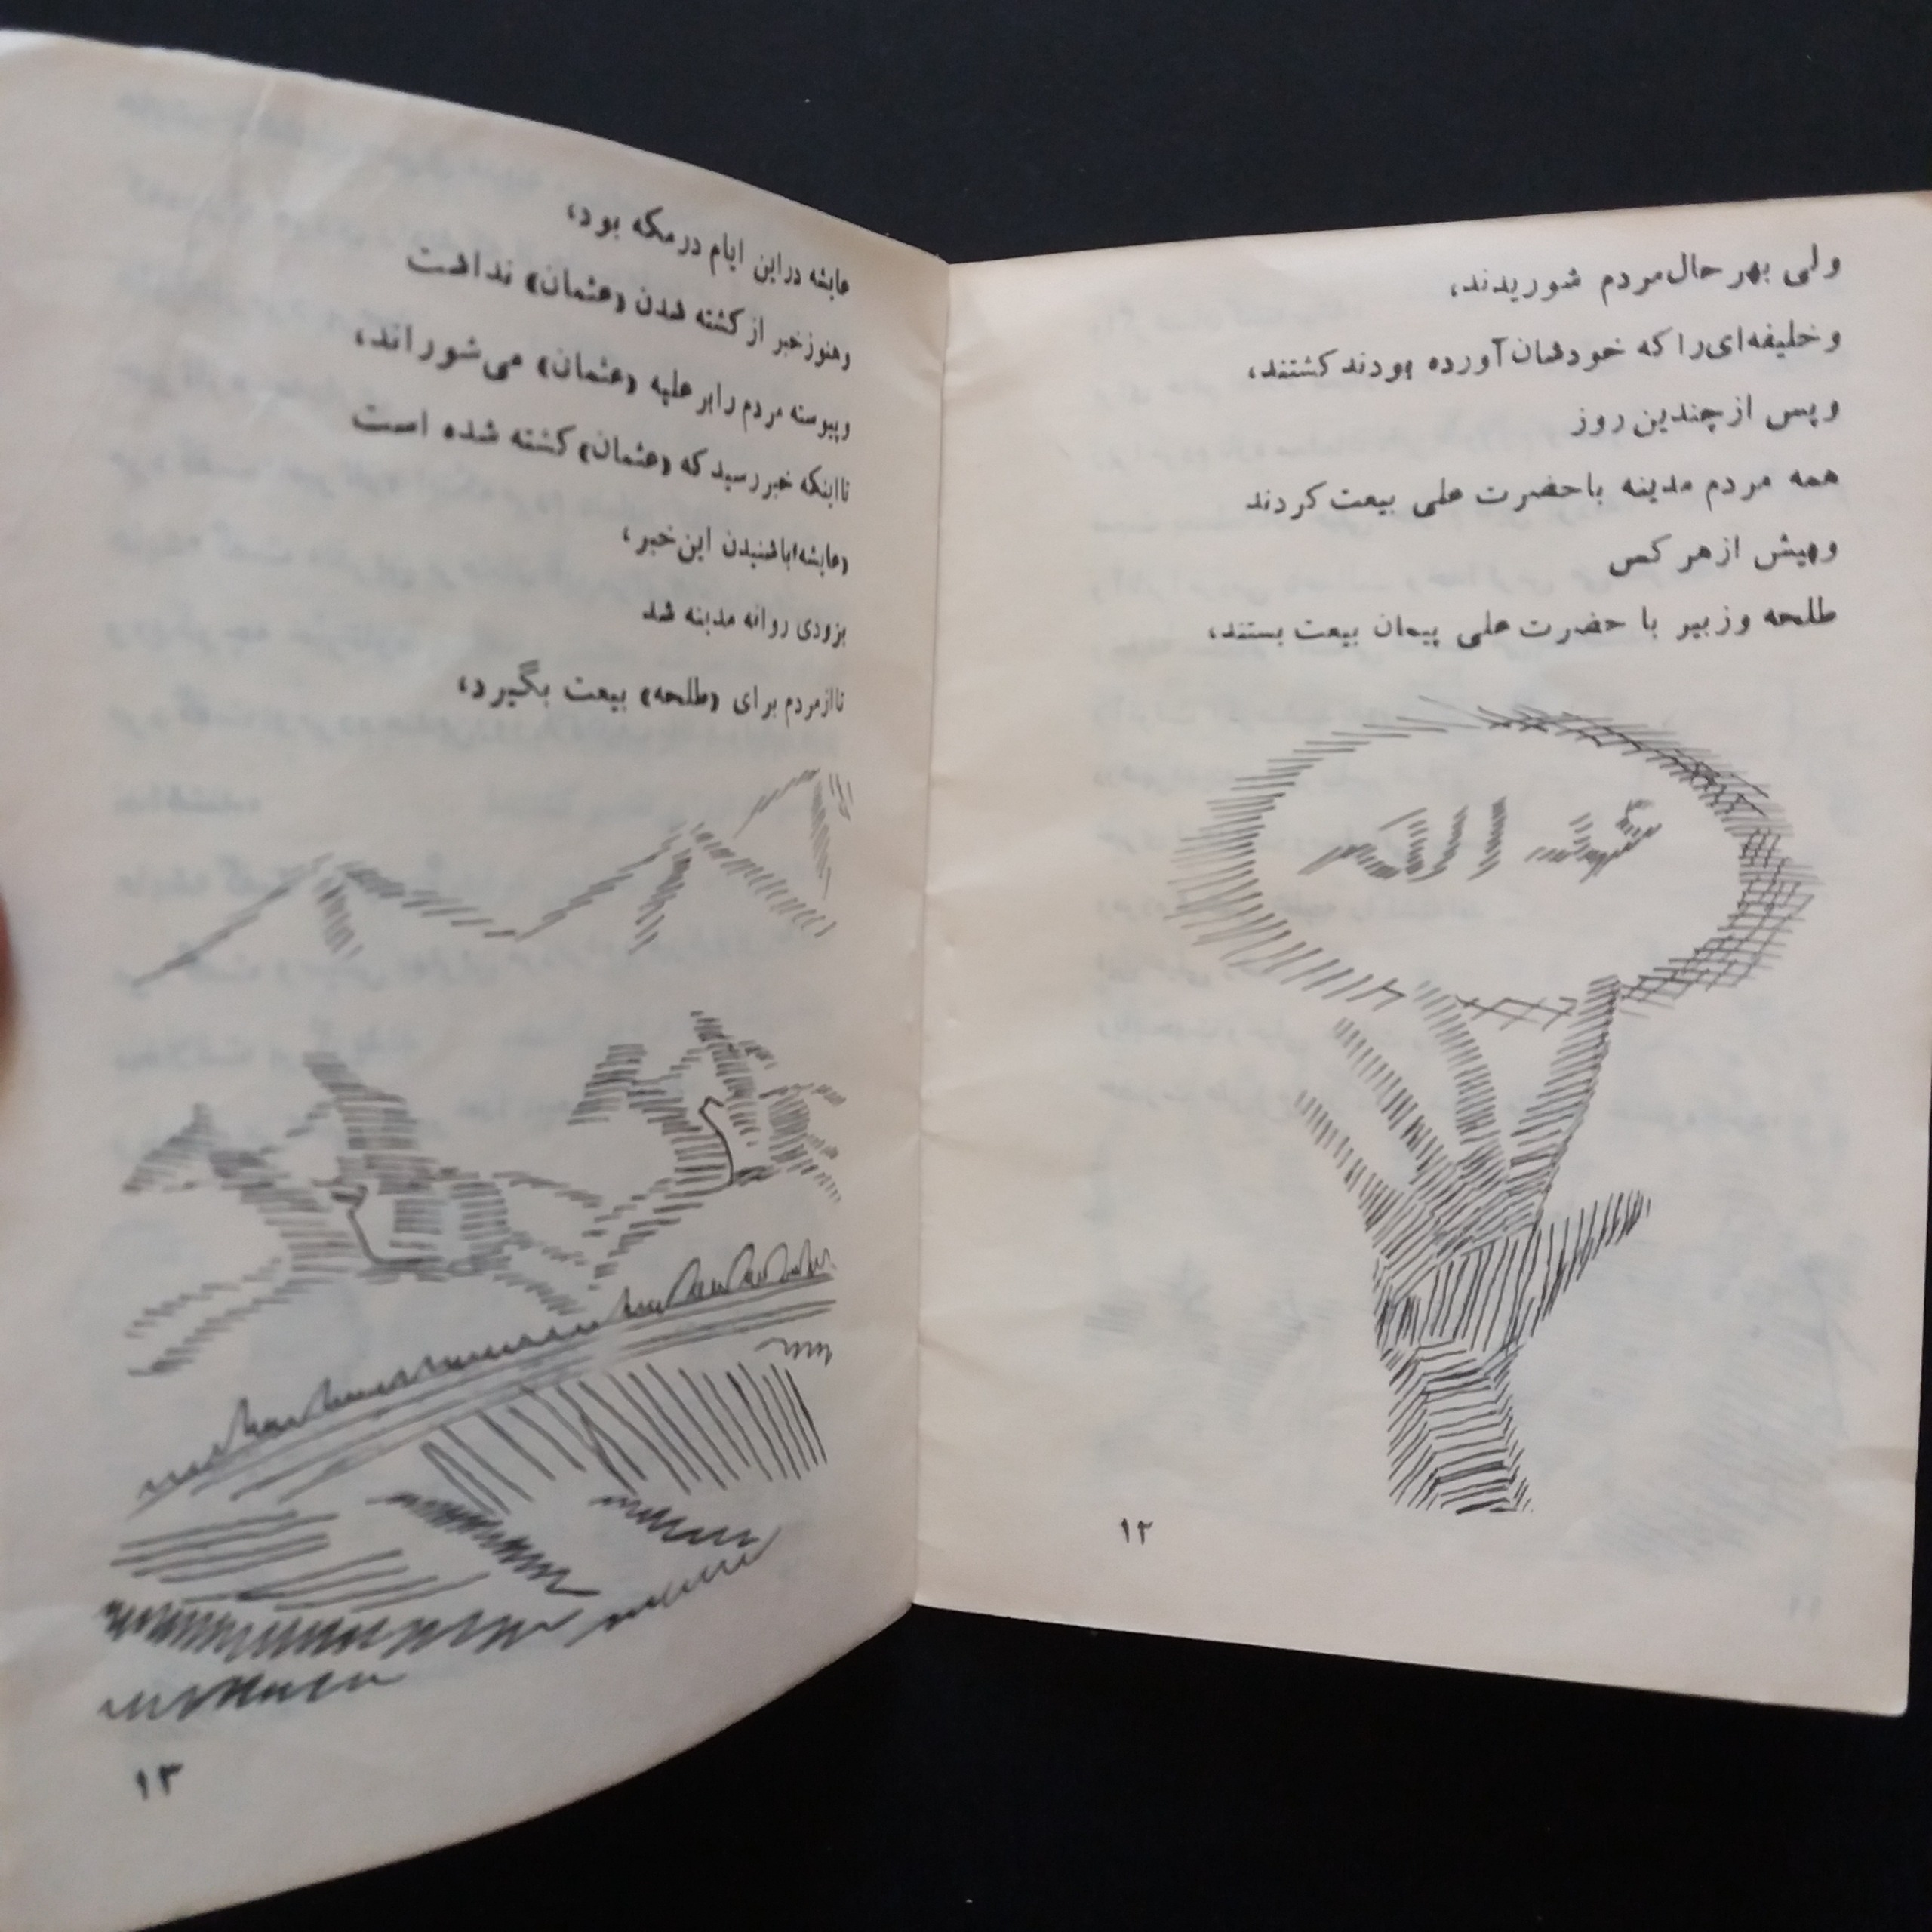 ولی بهر حال مردم شوریدند،
و خلیفه‌ای را که خودشان آورده بودند کشتند،
و پس از چندین روز
همه مردم مدینه با حضرت علی بیعت کردند
و پیش از هر کس
طلحه و زبیر با حضرت علی پیمان بیعت بستند،
الله
۱۲
عایشه در این ایام در مکه بود،
و هنوز خبر از کشته شدن «عثمان» نداشت
و پیوسته مردم را بر علیه «عثمان» می‌شوراند،
تا اینکه خبر رسید که «عثمان» کشته شده است
«عایشه» با شنیدن این خبر،
بزودی روانه مدینه شد
تا از مردم برای «طلحه» بیعت بگیرد،
۱۳